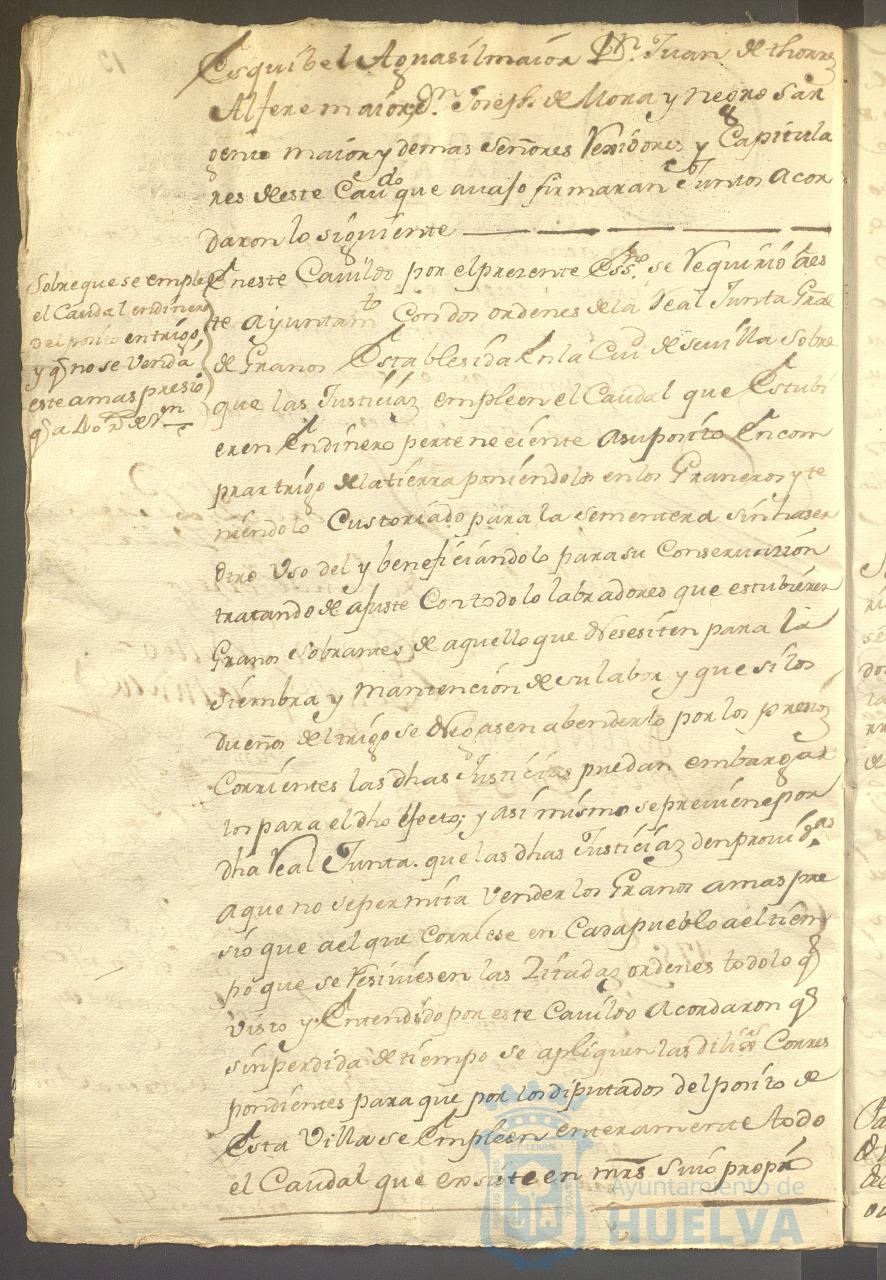 Esquibel Aguasil maior Dn. Juan de thorres
Alfere maior Dn. Joseph de Mora y negro Sar
gento maior y demas Señores Rexidores y Capitula
res deste Caudo que auajo firmaran Y Juntos Acor
daron lo siguiente
Sobre que se emplee
el Caudal en dinero
del posito en trigo
y q no se Venda
este a mas presio
q a 40 rs de Vn
Eneste Cauildo por el prezente Essno. se Requirio a es
te ayuntamto Con dos ordenes de la Real Junta Gral
de Granos Establesida En la Ciud de seuilla Sobre
que las Justiciaz empleen el Caudal que Estubi
eren En dinero perteneciente a su posito En com
prar trigo de la tierra poniendolo en los Graneros y te
niendolo Custoriado para la sementera sin haser
otro Uso del y beneficiandolo para su Conseruazion
tratando de ajuste Con todo lo labradores que estubieren
Granos sobrantes de aquello que Nesesiten para la
siembra y mantencion de su labor y que si los
Dueños del trigo se Negasen a benderlo por los presios
Corrientes las dhas Justicias puedan embargar
los para el dho efecto; y asi mismo se preuiene por
dha Real Junta. que las dhas Justiciaz den prouidas
a que no se permita Vender los Granos a mas pre
sio que a el que Corriese en Cada pueblo a el tiem
po que se Resiuiesen las Zitadaz ordenes todo lo q
Visto y Entendido por este Cauildo Acordaron q
sin perdida de tiempo se apliquen las dilixas Corres
pondientes para que por los diputados del posito de
Esta Villa se Empleen enteramente todo
el Caudal que exsiste en mrs suio propio
Ayuntamiento de
HUELVA